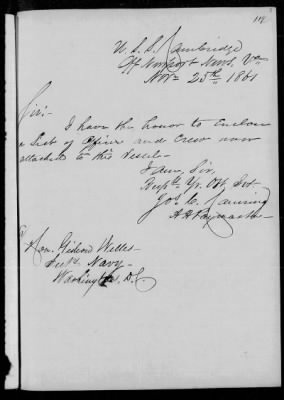 U. S. S. Cambridge
Off Newport News, Va
Nov 25th 1861
Sir:
I have the honor to enclose
a List of Officers and Crew now
attached to this Vessel.
I am Sir,
Respy Yr. Obt Svt
Jos. C.
A. A. Paymaster
Hon. Gideon Welles
Secy Navy
Washington, D.C.